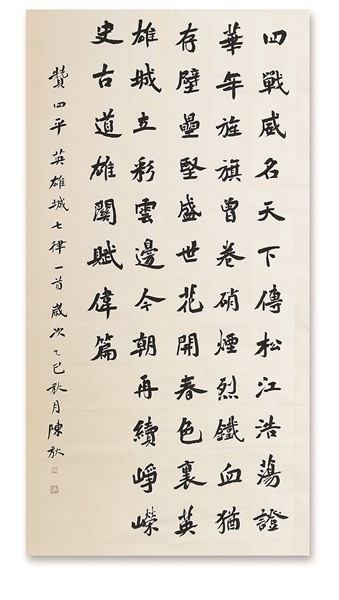 四戰威名天下傳松江浩蕩證
華年旌旗曾卷硝煙烈鐵血猶
存壁壘堅盛世花開春色裏英
雄城立彩雲邊今朝再續崢嶸
史古道雄關賦偉篇
贊四平英雄城七律一首歲次乙巳秋月陳秋